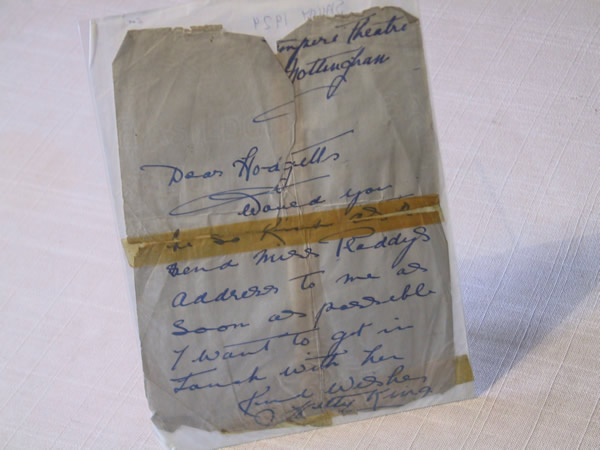 Empire Theatre
Nottingham
Dear Hodgetts
Would you
be so kind as to
send Miss Raddys
address to me as
soon as possible
I want to get in
touch with her
Kind Wishes
Hetty King